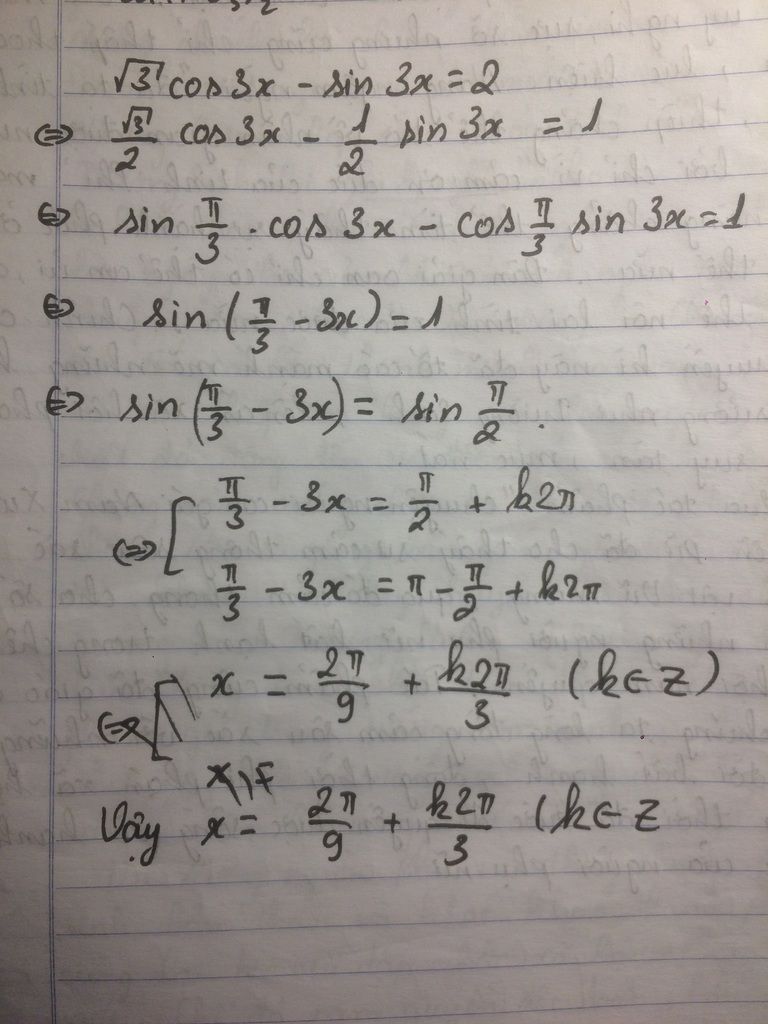 √3 cos 3x - sin 3x = 2
⇔ √3/2 cos 3x - 1/2 sin 3x = 1
⇔ sin π/3 . cos 3x - cos π/3 sin 3x = 1
⇔ sin (π/3 - 3x) = 1
⇔ sin (π/3 - 3x) = sin π/2 .
⇔ [ π/3 - 3x = π/2 + k2π
π/3 - 3x = π - π/2 + k2π
⇔ x = 2π/9 + k2π/3 (k ∈ Z)
Vậy x = 2π/9 + k2π/3 (k ∈ Z